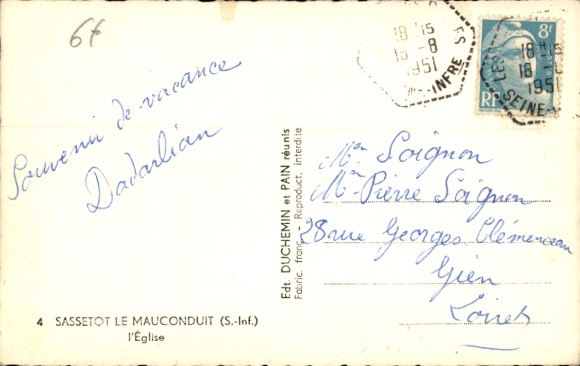 6f
Souvenir de vacance
Dadarlian
4 SASSETOT LE MAUCONDUIT (S.-Inf.)
l'Église
Edt. DUCHEMIN et PAIN réunis
Fabric. franç. Reproduct. interdite
18 H 15
18 -8
1951
INFRE
8F
RF
18 H 15
18
1951
SEINE-
Mr Soignon
Mr Pierre Soignon
28 rue Georges Clémenceau
Gien
Loiret